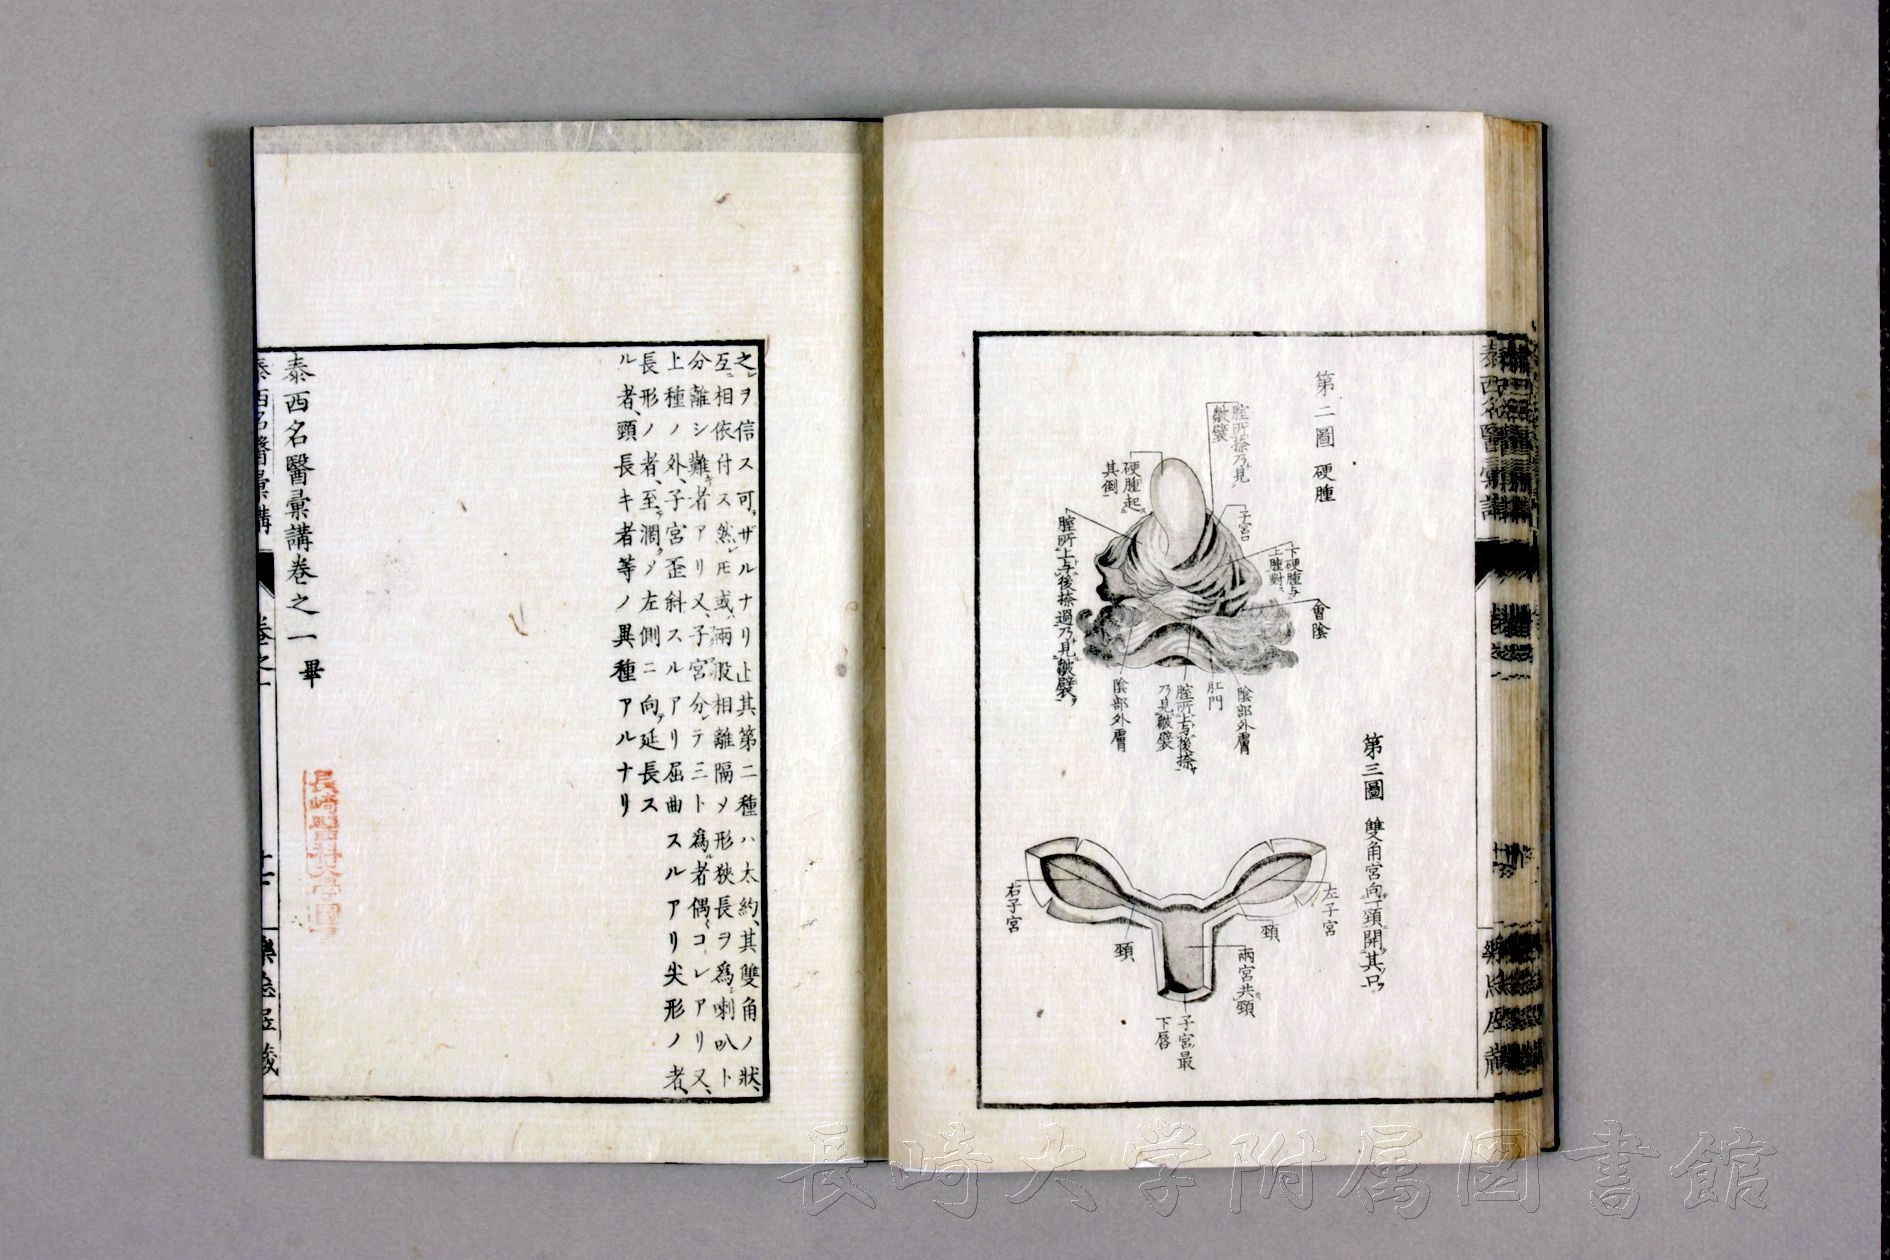 第二圖 硬腫
膣所捺乃見
皺襞
硬腫起
其倒
子宮口
下硬腫与
上腫對
會陰
膣所上与後捺過乃見皺襞
陰部外膚
肛門
膣所上与後捺
乃見皺襞
陰部外膚
第三圖 雙角宮向下頸開其只
左子宮
頸
兩宮共頸
子宮最
下唇
頸
右子宮
泰西名醫彙講
之ヲ信ス可ザルナリ止其第二種ハ太約、其雙角ノ狀、
互ニ相依付ス然レモ或ハ兩股相離隔メ形狹長ヲ爲シ喇叭ト
分離シ難キ者アリ又、子宮分レテ三ト爲ル者偶〻コレアリ又、
上種ノ外、子宮歪斜スルアリ屈曲スルアリ尖形ノ者、
長形ノ者、至テ濶クメ左側ニ向テ延長ス
ル者、頸長キ者等ノ異種アルナリ
泰西名醫彙講卷之一 畢
長崎醫科大學圖書
泰西名醫彙講
卷之一
長崎大学附属図書館